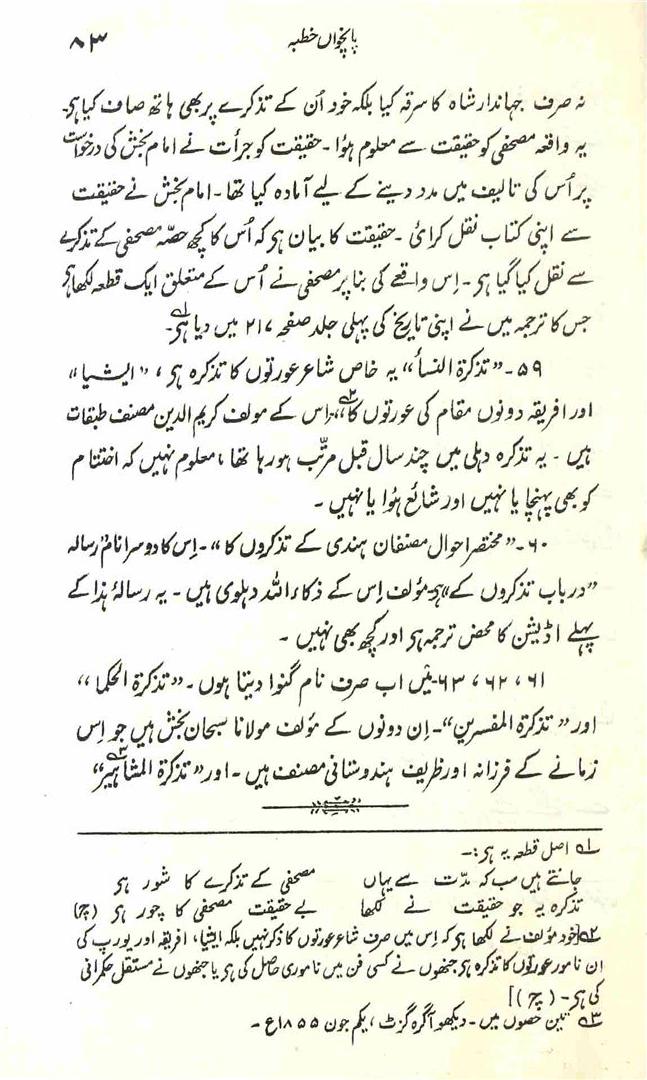 پانچواں خطبہ ۸۳
نہ صرف جہاندار شاہ کا سرقہ کیا بلکہ خود اُن کے تذکرے پر بھی ہاتھ صاف کیا ہی۔
یہ واقعہ مصحفی کو حقیقت سے معلوم ہوُا۔ حقیقت کو جرأت نے امام بخش کی درخواست
پر اُس کی تالیف میں مدد دینے کے لیے آمادہ کیا تھا۔ امام بخش نے حقیقت
سے اپنی کتاب نقل کرائ۔ حقیقت کا بیان ہی کہ اُس کا کچھ حصّہ مصحفی کے تذکرے
سے نقل کیا گیا ہی۔ اِس واقعے کی بنا پر مصحفی نے اُس کے متعلق ایک قطعہ لکھا ہی
جس کا ترجمہ میں نے اپنی تاریخ کی پہلی جلد صفحہ ۲۱۷ میں دیا ہی۔ ۱؎
۵۹۔ ”تذکرۃ النسأ“ یہ خاص شاعر عورتوں کا تذکرہ ہی، ”ایشیا“
اور افریقہ دونوں مقام کی عورتوں کا“ ۲؎ اِس کے مولف کریم الدین مصنف طبقات
ہیں۔ یہ تذکرہ دہلی میں چند سال قبل مرتّب ہو رہا تھا، معلوم نہیں کہ اختتام
کو بھی پہنچا یا نہیں اور شائع ہوُا یا نہیں۔
۶۰۔ ”مختصر احوال مصنفان ہندی کے تذکروں کا“۔ اِس کا دوسرا نام ”رسالہ
”در باب تذکروں کے“ ہی۔ مؤلف اِس کے ذکاء اللہ دہلوی ہیں۔ یہ رسالۂ ہذا کے
پہلے اڈیشن کا محض ترجمہ ہی اور کچھ بھی نہیں۔
۶۱، ۶۲، ۶۳۔ میَں اب صرف نام گنوا دیتا ہوں۔ ”تذکرۃ الحکما“
اور ”تذکرۃ المفسرین“۔ اِن دونوں کے مؤلف مولانا سبحان بخش ہیں جو اِس
زمانے کے فرزانہ اور ظریف ہندوستانی مصنف ہیں۔ اور ”تذکرۃ المشاہیر“ ۳؎
۱؎ اصل قطعہ یہ ہی:۔
جانتے ہیں سب کہ مدّت سے یہاں مصحفی کے تذکرے کا شور ہی
تذکرہ یہ جو حقیقت نے لکھا بے حقیقت مصحفی کا چور ہی (چ)
۲؎ [خود مؤلف نے لکھا ہی کہ اِس میں صرف شاعر عورتوں کا ذکر نہیں بلکہ ایشیا، افریقہ اور یورپ کی
ان نامور عورتوں کا تذکرہ ہی جنھوں نے کسی فن میں ناموری حاصل کی ہی یا جنھوں نے مستقل حکمرانی
کی ہی۔ (چ)]
۳؎ تین حصوں میں۔ دیکھو آگرہ گزٹ، یکم جون ۱۸۵۵ع۔